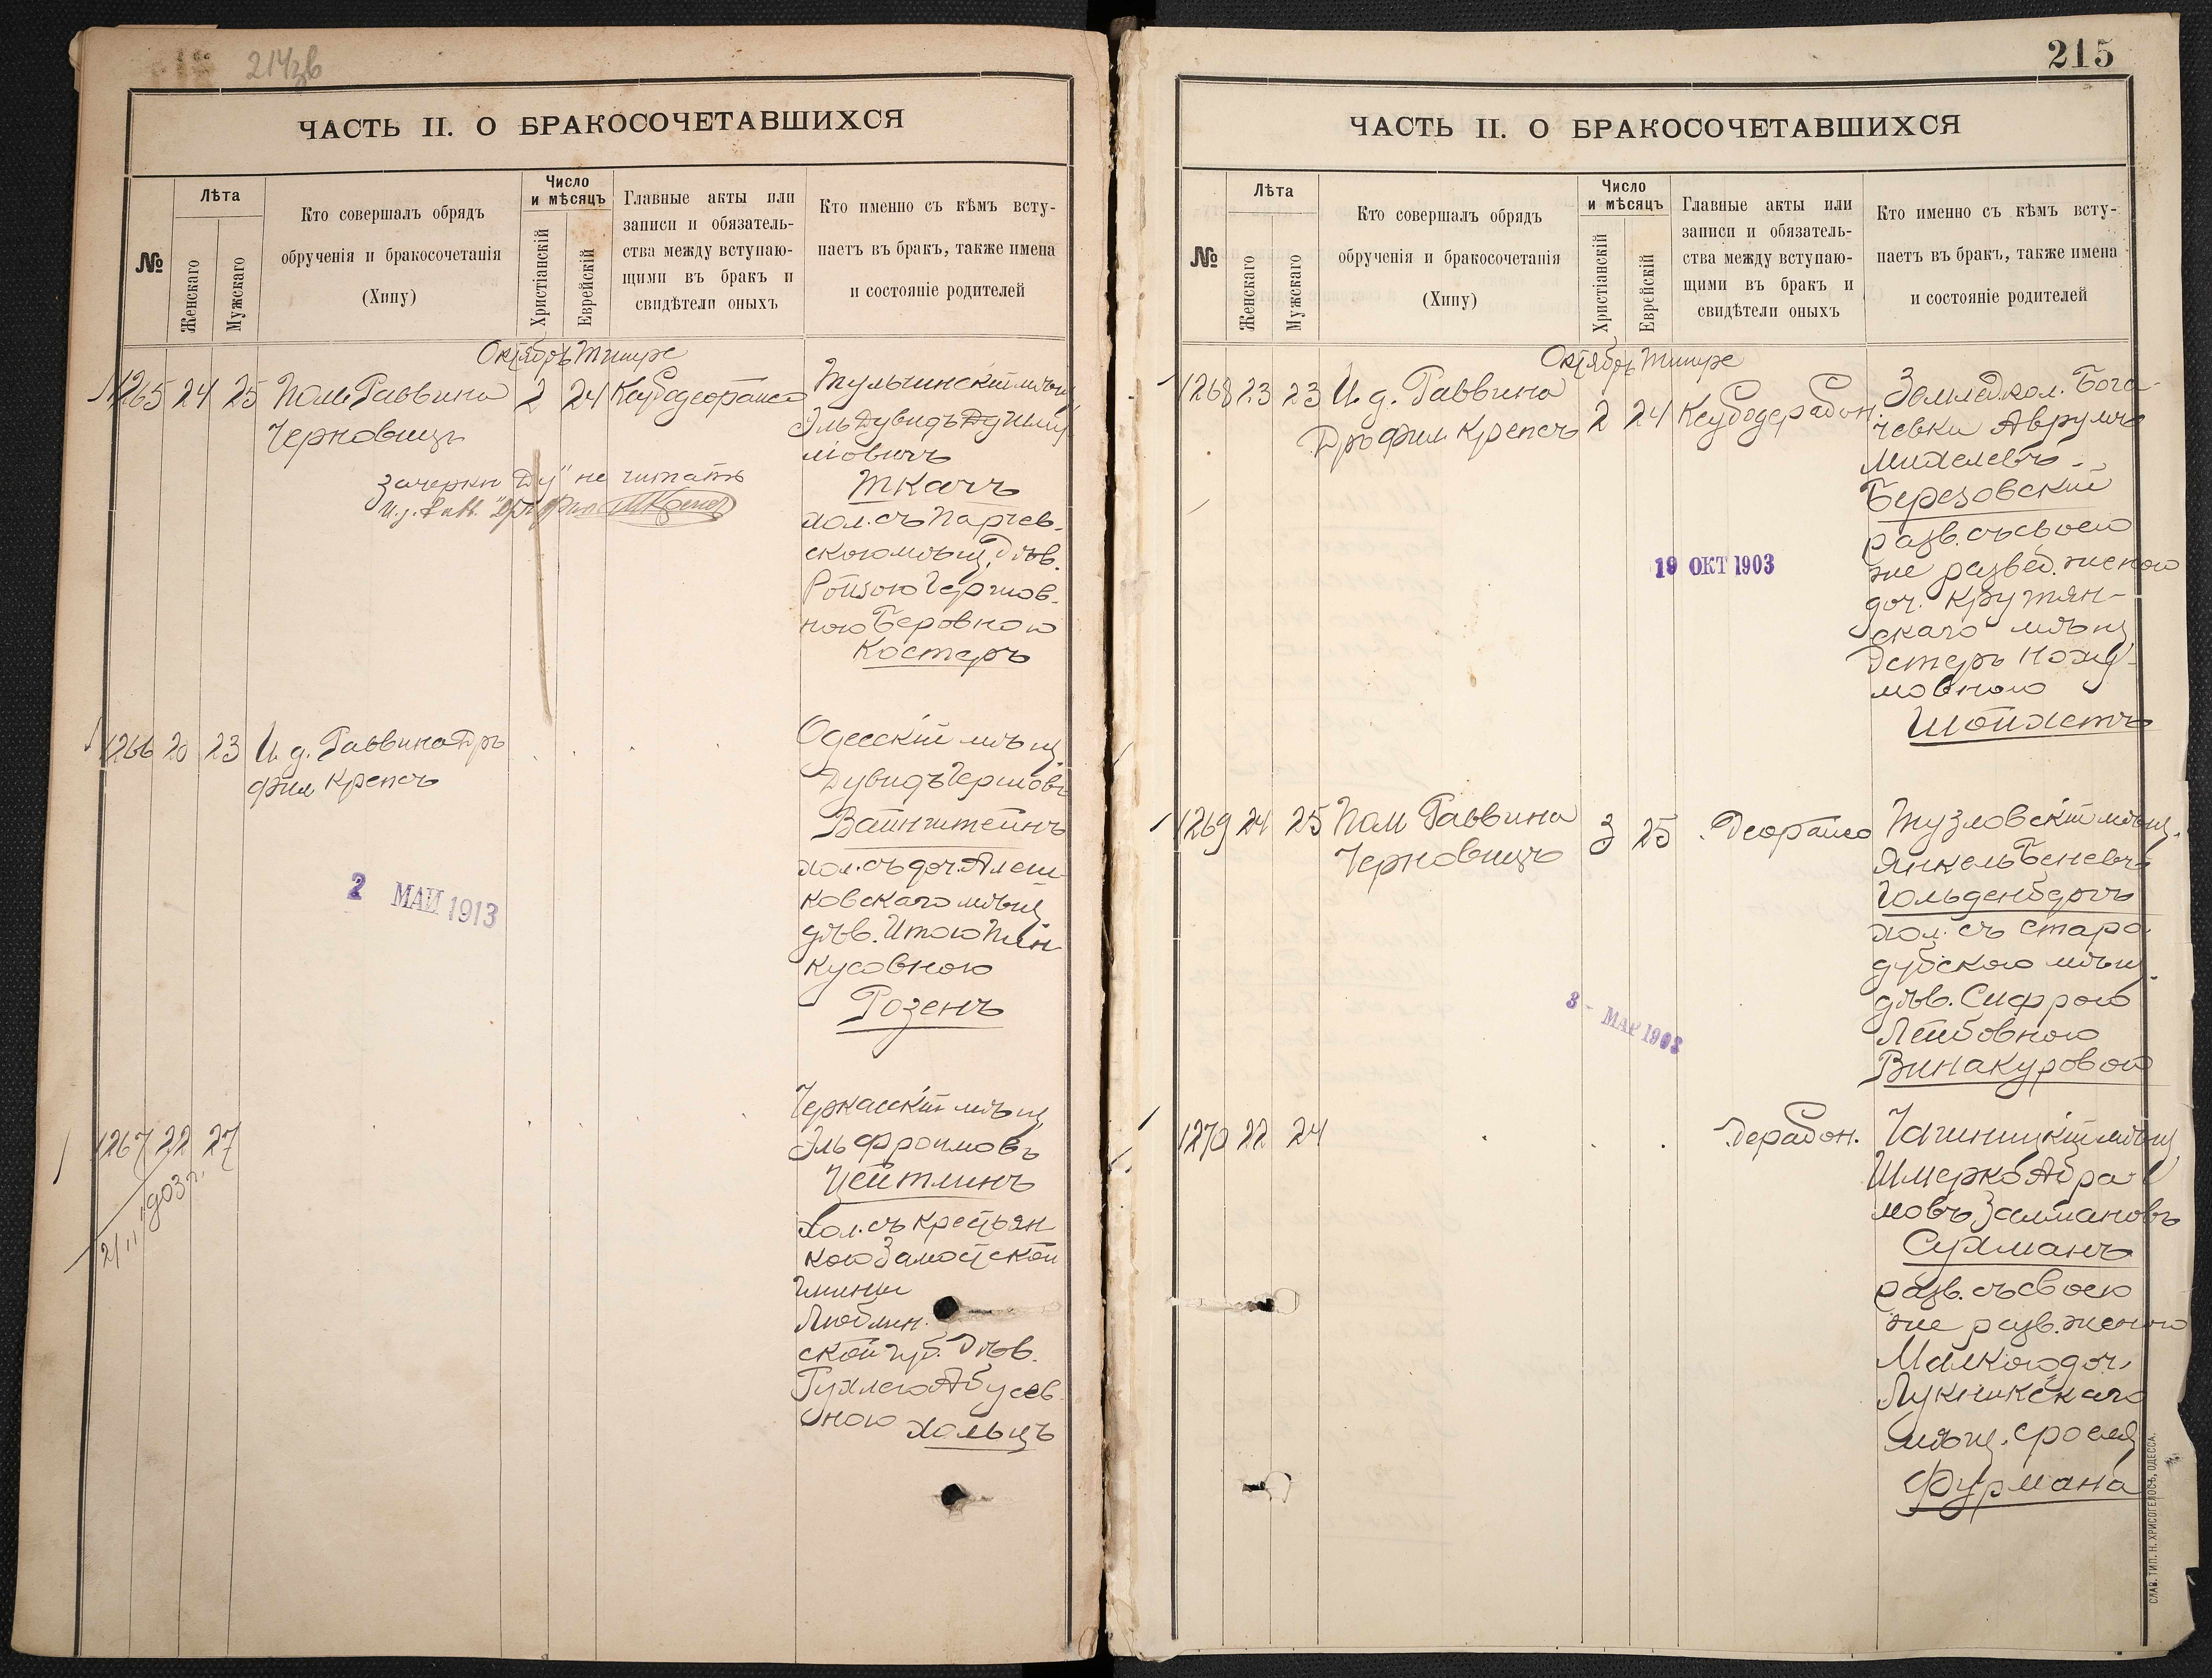 214зв
ЧАСТЬ II. О БРАКОСОЧЕТАВШИХСЯ
№
Лѣта
Женскаго
Мужскаго
Кто совершалъ обрядъ
обрученія и бракосочетанія
(Хипу)
Число
и мѣсяцъ
Христіанскій
Еврейскій
Главные акты или
записи и обязатель-
ства между вступаю-
щими въ бракъ и
свидѣтели оныхъ
Кто именно съ кѣмъ всту-
паетъ въ бракъ, также имена
и состояніе родителей
Октябрь Тишре
1265 24 25 Пом. Раввина
Черновицъ
2 24
зачеркн "Ду" не читать
Тульчинскій мѣщ.
Эль Дувидъ
Ткачъ
хол. съ Парчев-
скою мѣщ. Дѣв.
Ройзою Гершов-
ною Беровною
Костеръ
1266 20 23 И. д. Раввина Дръ
Фил Крепсъ
2 МАЙ 1913
Одесскій мѣщ.
Дувидъ Гершовъ
Вайнштейнъ
хол. съ доч. Алеш-
ковскаго мѣщ.
дѣв. Итою Пин-
кусовною
Розенъ
1267 22 27
2/11 903 г.
Черкасскій мѣщ.
Эль Фроимовъ
Цейтлинъ
Хол. съ крестьян
кою Замостской
гмины
Люблин.
ской губ. Дѣв.
Рухлею Абусев-
ною Хольцъ
215
ЧАСТЬ II. О БРАКОСОЧЕТАВШИХСЯ
№
Лѣта
Женскаго
Мужскаго
Кто совершалъ обрядъ
обрученія и бракосочетанія
(Хипу)
Число
и мѣсяцъ
Христіанскій
Еврейскій
Главные акты или
записи и обязатель-
ства между вступаю-
щими въ бракъ и
свидѣтели оныхъ
Кто именно съ кѣмъ всту-
паетъ въ бракъ, также имена
и состояніе родителей
Октябрь Тишре
1268 23 23 И. д. Раввина
Дръ Фил Крепсъ
2 24
19 ОКТ 1903
Землед. кол. Бога-
чевки Аврумъ
Михелевъ
Березовский
разв. съ своею
же развед. женою
доч. Крутян-
скаго мѣщ.
ЭстеръНоху-
мовною
Шойхетъ
1269 24 25 Пом Раввина
Черновицъ
3 25 Деорайсо
3 - МАР 1903
Тузловскій мѣщ.
Янкель Беневъ
Гольденбергъ
хол. съ Старо
дубскою мѣщ.
дѣв. Сифрою
Лейбовною
Винакуровой
1270 22 24
Дерабон.
мѣщ
Шмерко Абра-
мовъ Залмановъ
Сухманъ
разв. съ своею
же разв. женою
Малкою доч.
Лукникскаго
мѣщ. Сроела
Фурмана
СЛАВ. ТИП. Н. ХРИСОГЕЛОСЪ, ОДЕССА.